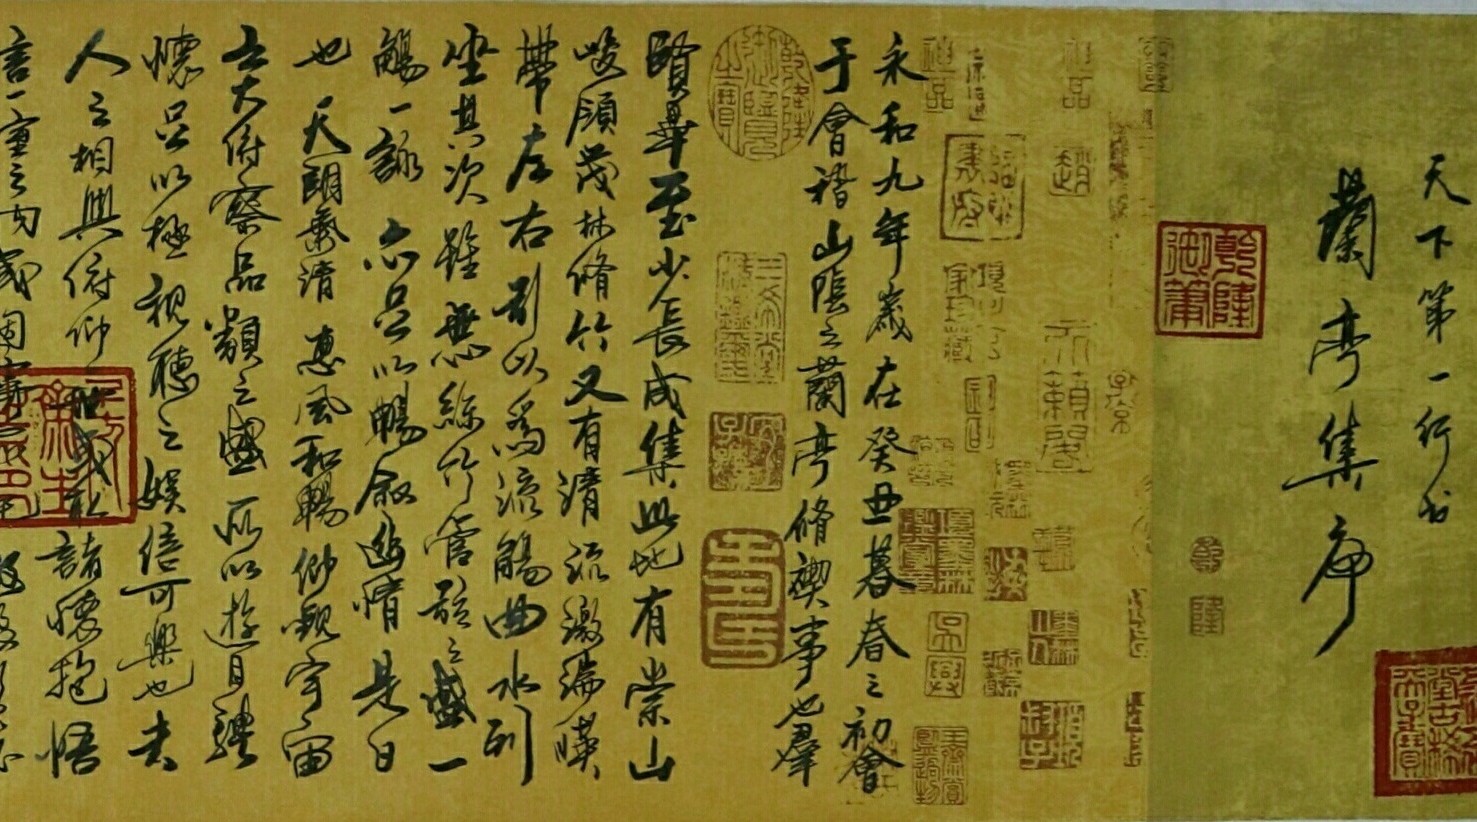 天下第一行书
蘭亭集序
乾隆御筆
乾隆
神品
神品
趙
永和九年歲在癸丑暮春之初會
于會稽山陰之蘭亭脩禊事也羣
乾隆御覽之寶
三希堂精鑑璽
宜子孫
賢畢至少長咸集此地有崇山
峻領茂林脩竹又有清流激湍暎
帶左右引以為流觴曲水列
坐其次雖無絲竹管弦之盛一
觴一詠亦足以暢敘幽情是日
也天朗氣清惠風和暢仰觀宇宙
之大俯察品類之盛所以遊目騁
懷足以極視聽之娛信可樂也夫
人之相與俯仰一世或取諸懷抱悟
言一室之内或因寄所